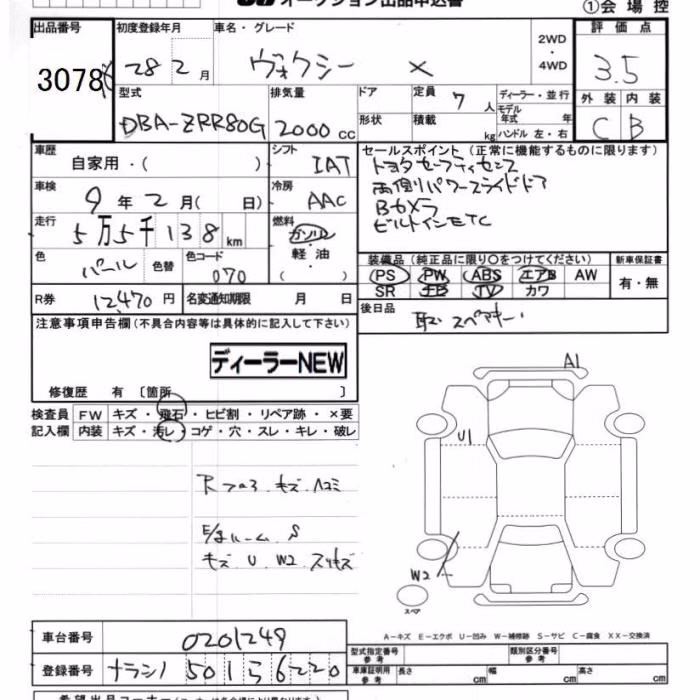 オークション出品申込書
①会場控
出品番号 初度登録年月 車名・グレード 評価点
3078 28 2月 ヴォクシー X 2WD・4WD 3.5
型式 排気量 ドア 定員 7 人 ディーラー・並行 外装 内装
DBA-ZRR80G 2000 CC 形状 積載 kg モデル年式 年 ハンドル 左・右 C B
車歴 自家用・( ) シフト IAT セールスポイント (正常に機能するものに限ります)
トヨタセーフティセンス
車検 9年 2月( 日) 冷房 AAC 両側パワースライドドア
Bカメラ
走行 5万5千138km 燃料 ガソリン・軽油・( ) ビルトインETC
色 パール 色替 色コード 070 装備品 (純正品に限り○をつけてください) 新車保証書
PS PW ABS エアB AW 有・無
R券 12,470円 名変通知期限 月 日 SR TV カワ
注意事項申告欄(不具合内容等は具体的に記入して下さい) 後日品 取、スペアキー
ディーラーNEW
修復歴 有 〔箇所 〕 A1
検査員 FW キズ・飛石・ヒビ割・リペア跡・×要
記入欄 内装 キズ・汚レ・コゲ・穴・スレ・キレ・破レ
U1
キズ ヘコミ
S
キズ U W2 スリキズ
W2
スペア
A-キズ E-エクボ U-凹み W-補修跡 S-サビ C-腐食 XX-交換済
車台番号 0201249 型式指定番号 参考 類別区分番号 参考
登録番号 501 5 6220 車庫証明用 参考 長さ cm 幅 cm 高さ cm